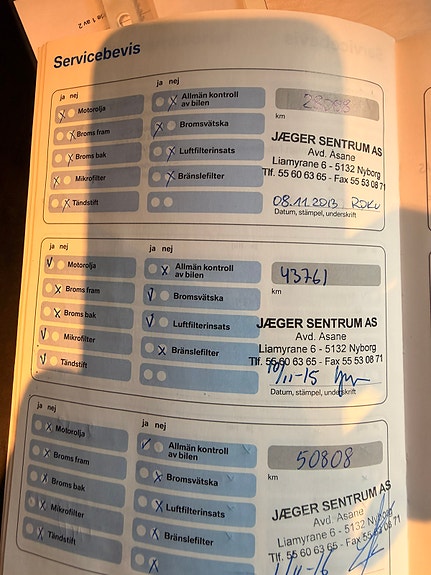 Servicebevis
ja nej
ja nej
Motorolja
Allmän kontroll
av bilen
Broms fram
Bromsvätska
km
Broms bak
Luftfilterinsats
JÆGER SENTRUM AS
Avd. Åsane
Liamyrane 6 - 5132 Nyborg
Tlf. 55 60 63 65 - Fax 55 53 08 71
Mikrofilter
Bränslefilter
Tändstift
08.11.2013
Datum, stämpel, underskrift
ja nej
ja nej
Motorolja
Allmän kontroll
av bilen
43761
Broms fram
Bromsvätska
km
Broms bak
Luftfilterinsats
JÆGER SENTRUM AS
Avd. Åsane
Liamyrane 6 - 5132 Nyborg
Tlf. 55 60 63 65 - Fax 55 53 08 71
Mikrofilter
Bränslefilter
Tändstift
11-15
Datum, stämpel, underskrift
ja nej
ja nej
Motorolja
Allmän kontroll
av bilen
50808
Broms fram
Bromsvätska
km
Broms bak
Luftfilterinsats
JÆGER SENTRUM AS
Avd. Åsane
Liamyrane 6 - 5132 Nyborg
Tlf. 55 60 63 65 - Fax 55 53 08 71
Mikrofilter
Bränslefilter
Tändstift
11-16